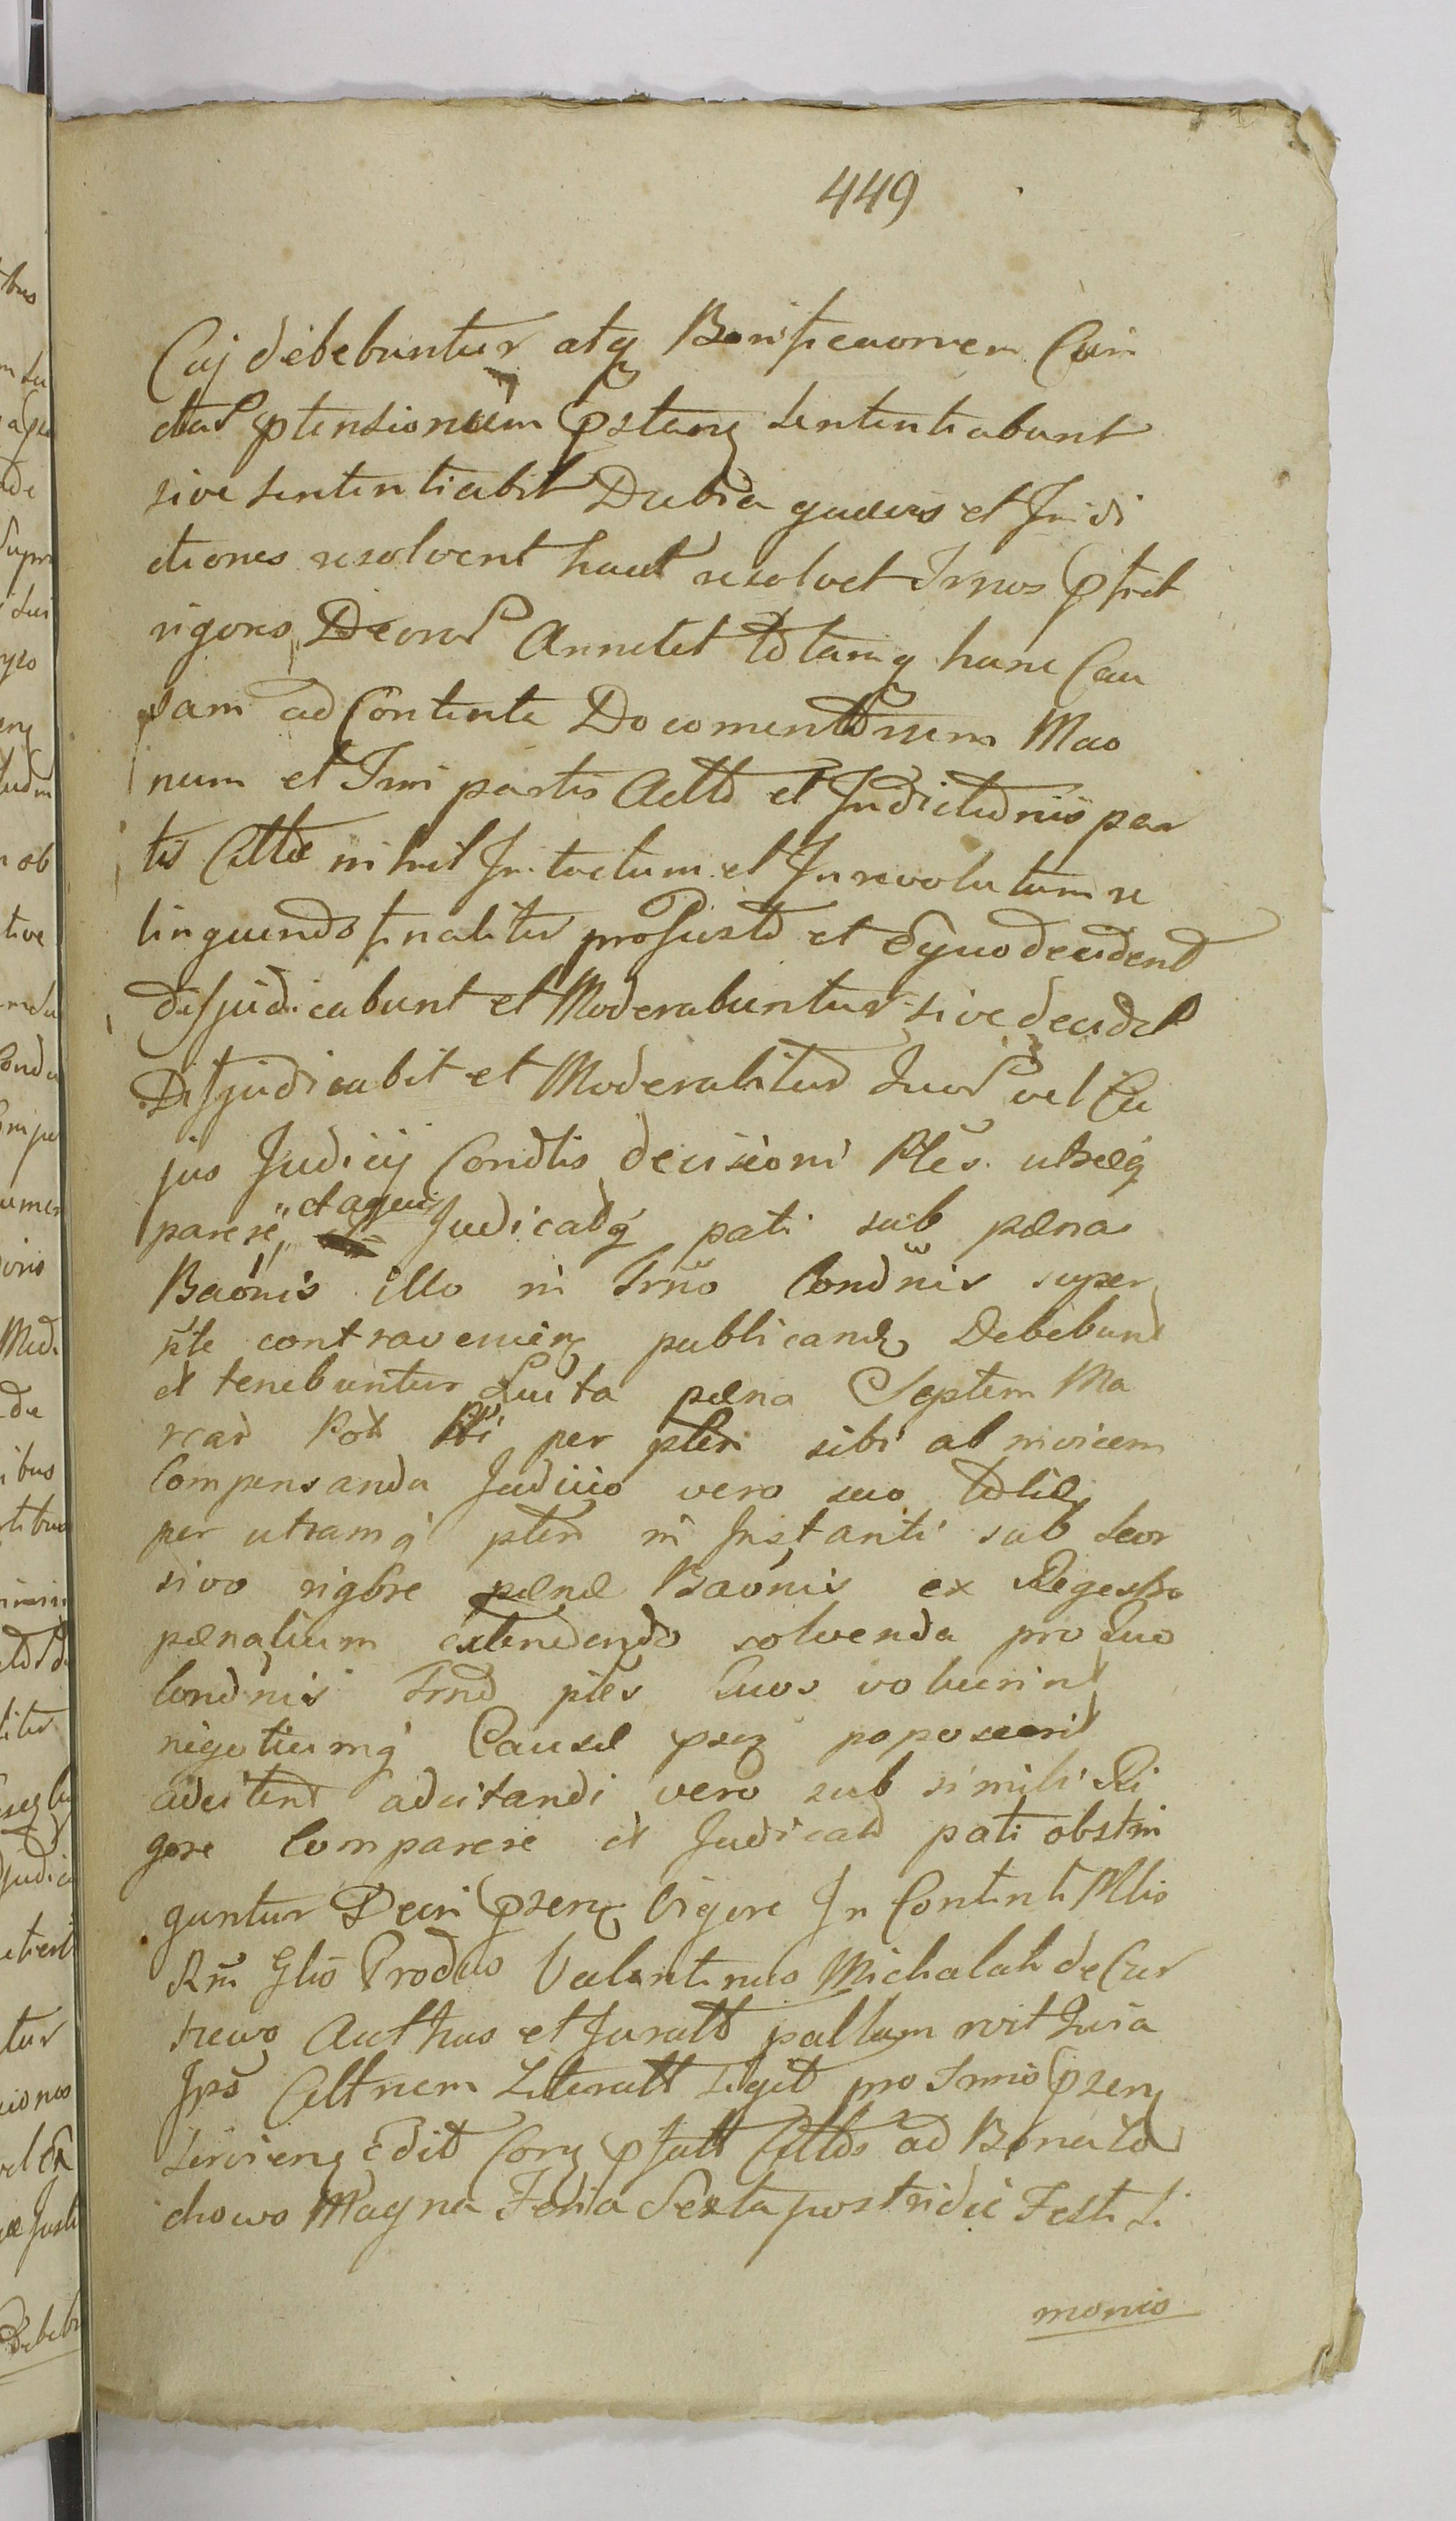 449
Cuj debebuntur atq Bonificaonem Cun
ctar ptensionum pstanq sententiabunt
sive sententiabit Dubia quævis et Indi
ctiones resolvent haut resolvet Irnos pfret
rigores Decror Annetet totamq hanc Cau
sam ad Contenta Documentorum Mao
num et Irni partis Actto et Indictionis par
tis Cittæ nihil Intactum et Inrevolutum re
linquendo finaliter pro Justo et Equo decident
disjudicabunt et Moderabuntur sive decidet
Disjudicabit et Moderabitur Quor vel Cu
jus Judicij Condtis decisioni Ptes utræq
parere et aquiJudicatq pati sub pæna
Baonis illo in Trno Condnis super
pte contravenienq publicandq Debebunt
et tenebuntur Luita pæna Septem Ma
rcar Pol per ptem sibi ab invicem
Compensanda Judicio vero suo totieq
per utramq ptem in Instanti sub seor
sivo rigore pænæ Baonis ex Regestro
pænalium extendendo solvenda pro quo
Condnis Trno ptes Quos voluerint
negotiumq Causæ psez poposcerit
adcitent adcitandi vero sub simili Ri
gore Comparere et Judicat pati obstrin
guntur Decri psenq Vigore In Contenti Mttis
Rni Glis Prodcto Valentinus Michalski de Czer
niewo Authus et Juratt pallam rvit Quia
Ips Cittnem Literatt Legit pro Trmo psenq
servienq Edit Corq pfatt Cittos ad Bona to
chowo Magna Feria Sexta postridie Festi Si
monis